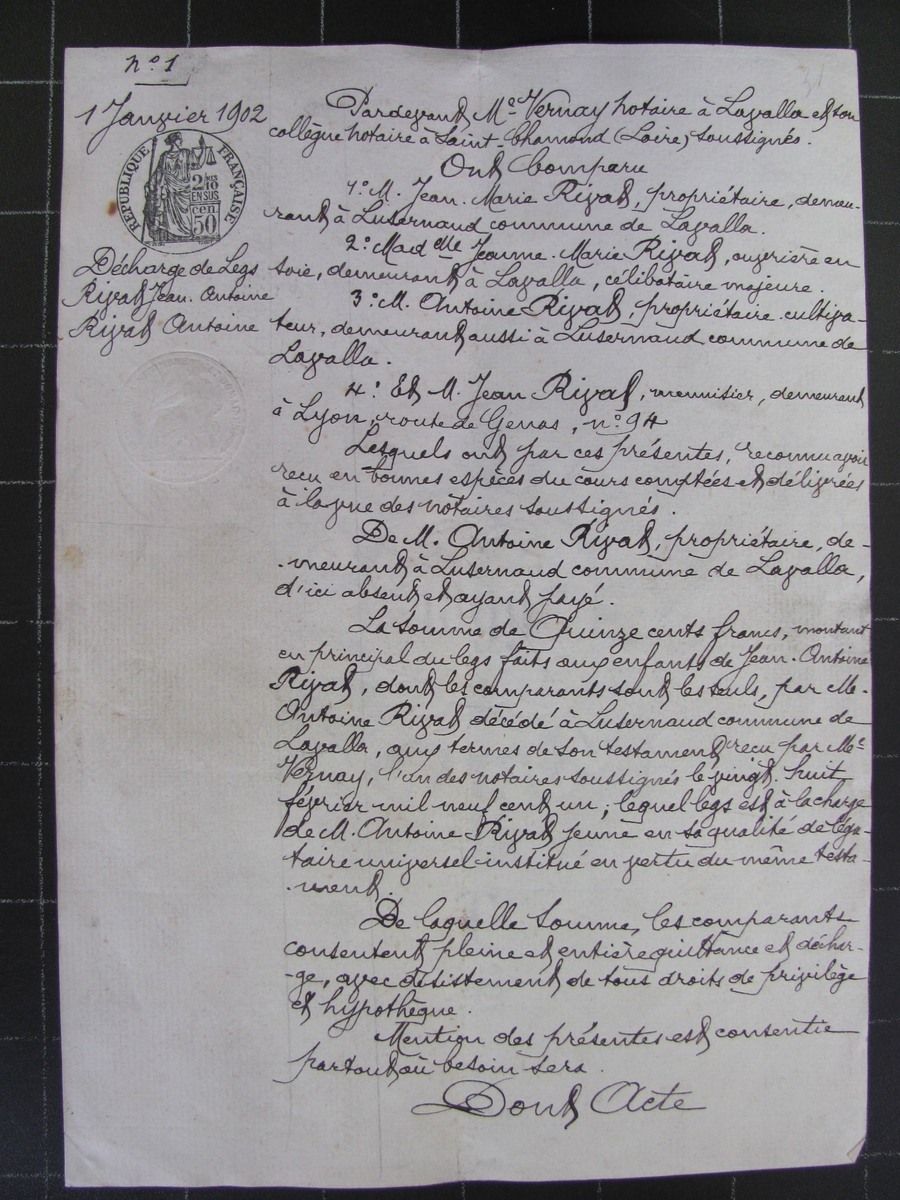 n° 1
1 Janvier 1902
RÉPUBLIQUE FRANÇAISE
2/10
EN SUS
50 cen
Décharge de Legs
Rivat Jean. Antoine
Rivat Antoine
Pardevant Me Vernay notaire à Lavalla et son
collègue notaire à Saint-Chamond (Loire) soussignés.
Ont Comparu
1° M. Jean. Marie Rivat, propriétaire, demeu-
rant à Lusernaud commune de Lavalla.
2° Madelle Jeanne. Marie Rivat, ouvrière en
soie, demeurant à Lavalla, célibataire majeure.
3° M. Antoine Rivat, propriétaire cultiva-
teur, demeurant aussi à Lusernaud commune de
Lavalla.
4° Et M. Jean Rivat, menuisier, demeurant
à Lyon, route de Genas, n° 94
Lesquels ont par ces présentes, reconnu avoir
reçu en bonnes espèces du cours comptées et délivrées
à la vue des notaires soussignés.
De M. Antoine Rivat, propriétaire, de-
meurant à Lusernaud commune de Lavalla,
d'ici absent et ayant payé.
La somme de Quinze cents francs, montant
en principal du legs faits aux enfants de Jean. Antoine
Rivat, dont les comparants sont les seuls, par M.
Antoine Rivat décédé à Lusernaud commune de
Lavalla, aux termes de son testament reçu par Me
Vernay, l'un des notaires soussignés le vingt. huit
février mil neuf cent un ; lequel legs est à la charge
de M. Antoine Rivat jeune en sa qualité de léga-
taire universel institué en vertu du même testa-
ment.
De laquelle somme, les comparants
consentent pleine et entière quittance et déchar-
-ge, avec désistement de tous droits de privilège
et hypothèque.
Mention des présentes est consentie
partout où besoin sera.
Dont Acte